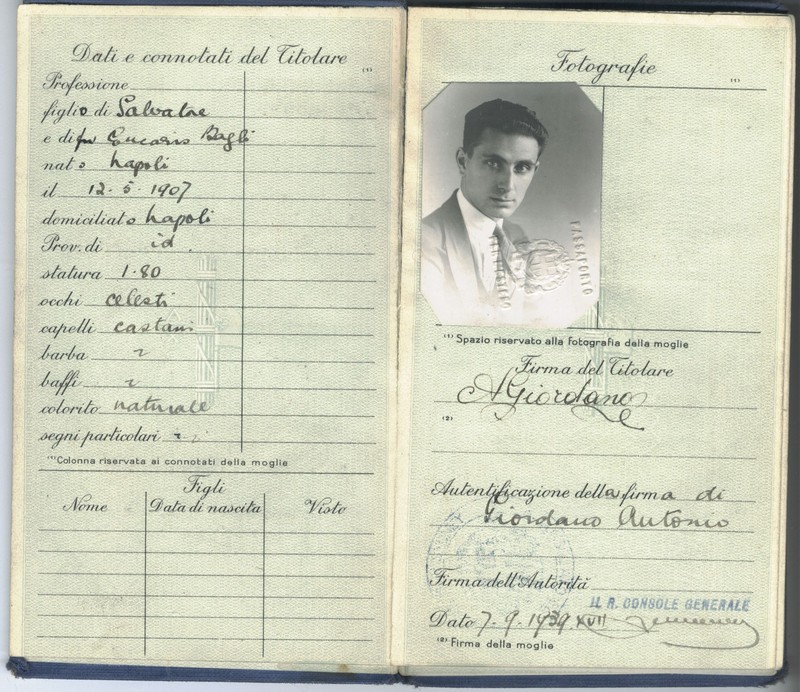 Dati e connotati del Titolare
(1)
Professione
figlio di Salvatore
e di fu Eucaris Bagli
nato Napoli
il 12-5-1907
domiciliato Napoli
Prov. di id.
statura 1.80
occhi celesti
capelli castani
barba
baffi
colorito naturale
segni particolari
(1) Colonna riservata ai connotati della moglie
Figli
Nome Data di nascita Visto
Fotografie
(1)
PASSAPORTO
(1) Spazio riservato alla fotografia della moglie
Firma del Titolare
A Giordano
(2)
Autentificazione della firma di
Giordano Antonio
Firma dell'Autorità
IL R. CONSOLE GENERALE
Dato 7.9.1939 XVII
(2) Firma della moglie